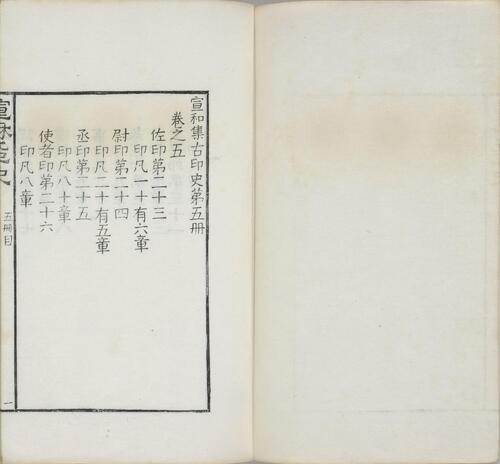 宣和集古印史第五冊
卷之五
佐印第二十三
印凡一十有六章
尉印第二十四
印凡二十有五章
丞印第二十五
印凡八十章
使者印第二十六
印凡八章
五冊目
一